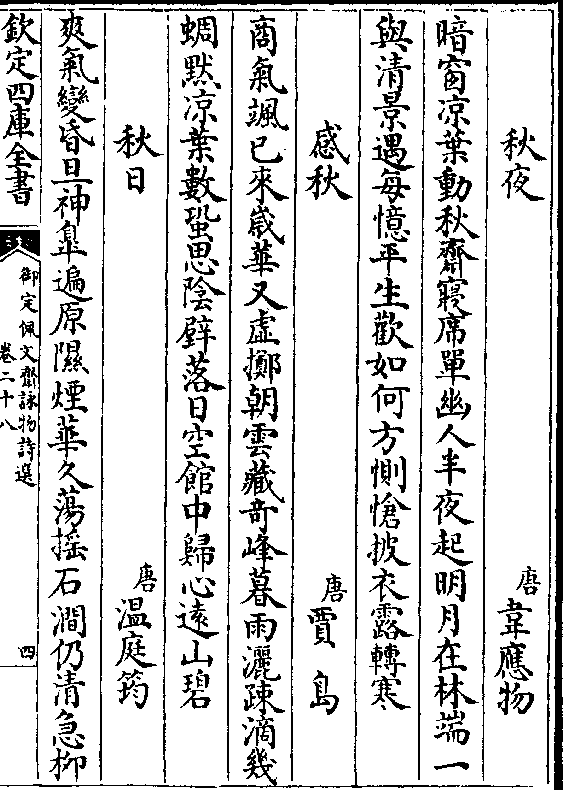 秋夜 唐 韋應物
暗窗凉葉動秋齋寢席單幽人半夜起明月在林端一
與清景遇每憶平生歡如何方惻愴披衣露轉寒
感秋 唐 賈島
商氣颯已來歲華又虛擲朝雲藏奇峰暮雨灑疎滴幾
蜩黙凉葉數蛩思陰壁落日空館中歸心遠山碧
秋日 唐 温庭筠
爽氣變昏旦神臯遍原隰煙華久蕩揺石澗仍清急柳
欽定四庫全書
御定佩文齋詠物詩選
卷二十八
四